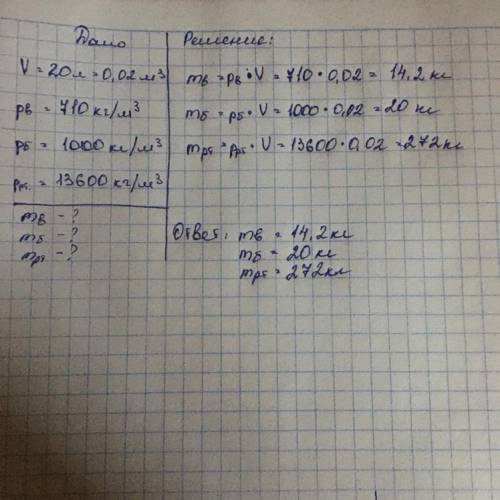 Дано
V = 20л = 0,02 м³
ρв = 710 кг/м³
ρб = 1000 кг/м³
ρрт. = 13600 кг/м³
mв - ?
mб - ?
mрт - ?
Решение:
mв = ρв • V = 710 • 0,02 = 14,2 кг
mб = ρб • V = 1000 • 0,02 = 20 кг
mрт = ρрт • V = 13600 • 0,02 = 272 кг
Ответ: mв = 14,2 кг
mб = 20 кг
mрт = 272 кг